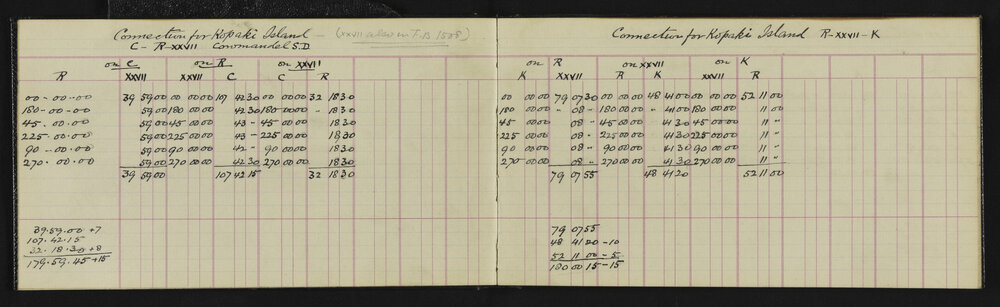 Connection for Kopaki Island - (XXVII also in F.B 1505)
C - R - XXVII Coromandel S.D.
on C on R on XXVII
R XXVII XXVII C C R
00-00-00 39 59 00 00 00 00 107 42 30 00 00 00 32 18 30
180-00-00 59 00 180 00 00 42 30 180 00 00 " 18 30
45.00.00 59 00 45 00 00 43 - 45 00 00 18 30
225.00.00 59 00 225 00 00 43 - 225 00 00 18 30
90-00.00 59 00 90 00 00 42 - 90 00 00 18 30
270.00.00 59 00 270 00 00 42 30 270 00 00 18 30
39 59 00 107 42 15 32 18 30
39.59.00 +7
107.42.15
32.18.30 +8
179.59.45 +15
Connection for Kopaki Island R-XXVII-K
on R on XXVII on K
K XXVII R K XXVII R
00 00 00 79 07 30 00 00 00 48 41 00 00 00 00 52 11 00
180 00 00 " 08 " 180 00 00 " 41 00 180 00 00 11 "
45 00 00 08 " 45 00 00 41 30 45 00 00 11 "
225 00 00 08 " 225 00 00 41 30 225 00 00 11 "
90 00 00 08 " 90 00 00 41 30 90 00 00 11 "
270 00 00 08 " 270 00 00 41 30 270 00 00 11 "
79 07 55 48 41 20 52 11 00
79 07 55
48 41 20 -10
52 11 00 -5
180 00 15 -15